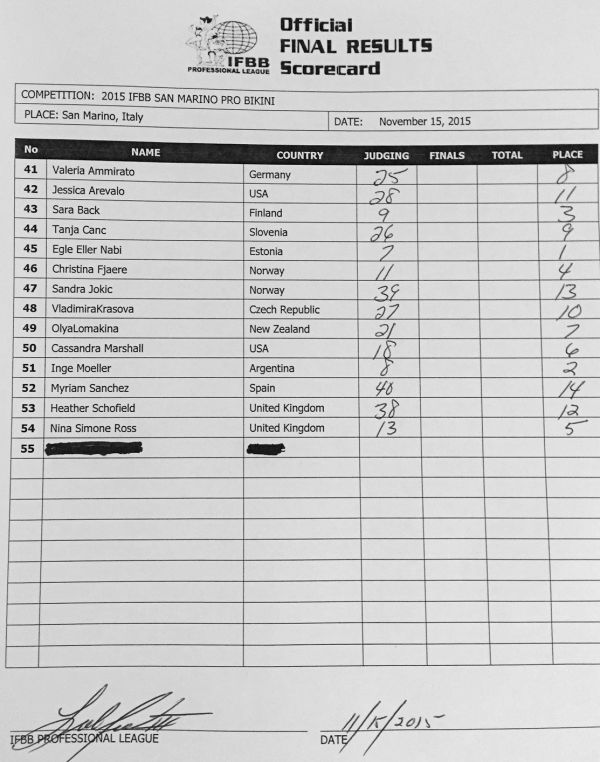 Official
FINAL RESULTS
Scorecard
IFBB
PROFESSIONAL LEAGUE
COMPETITION: 2015 IFBB SAN MARINO PRO BIKINI
PLACE: San Marino, Italy DATE: November 15, 2015
No NAME COUNTRY JUDGING FINALS TOTAL PLACE
41 Valeria Ammirato Germany 25 8
42 Jessica Arevalo USA 28 11
43 Sara Back Finland 9 3
44 Tanja Canc Slovenia 26 9
45 Egle Eller Nabi Estonia 7 1
46 Christina Fjaere Norway 11 4
47 Sandra Jokic Norway 39 13
48 VladimiraKrasova Czech Republic 27 10
49 OlyaLomakina New Zealand 21 7
50 Cassandra Marshall USA 18 6
51 Inge Moeller Argentina 8 2
52 Myriam Sanchez Spain 40 14
53 Heather Schofield United Kingdom 38 12
54 Nina Simone Ross United Kingdom 13 5
55
11/15/2015
IFBB PROFESSIONAL LEAGUE DATE